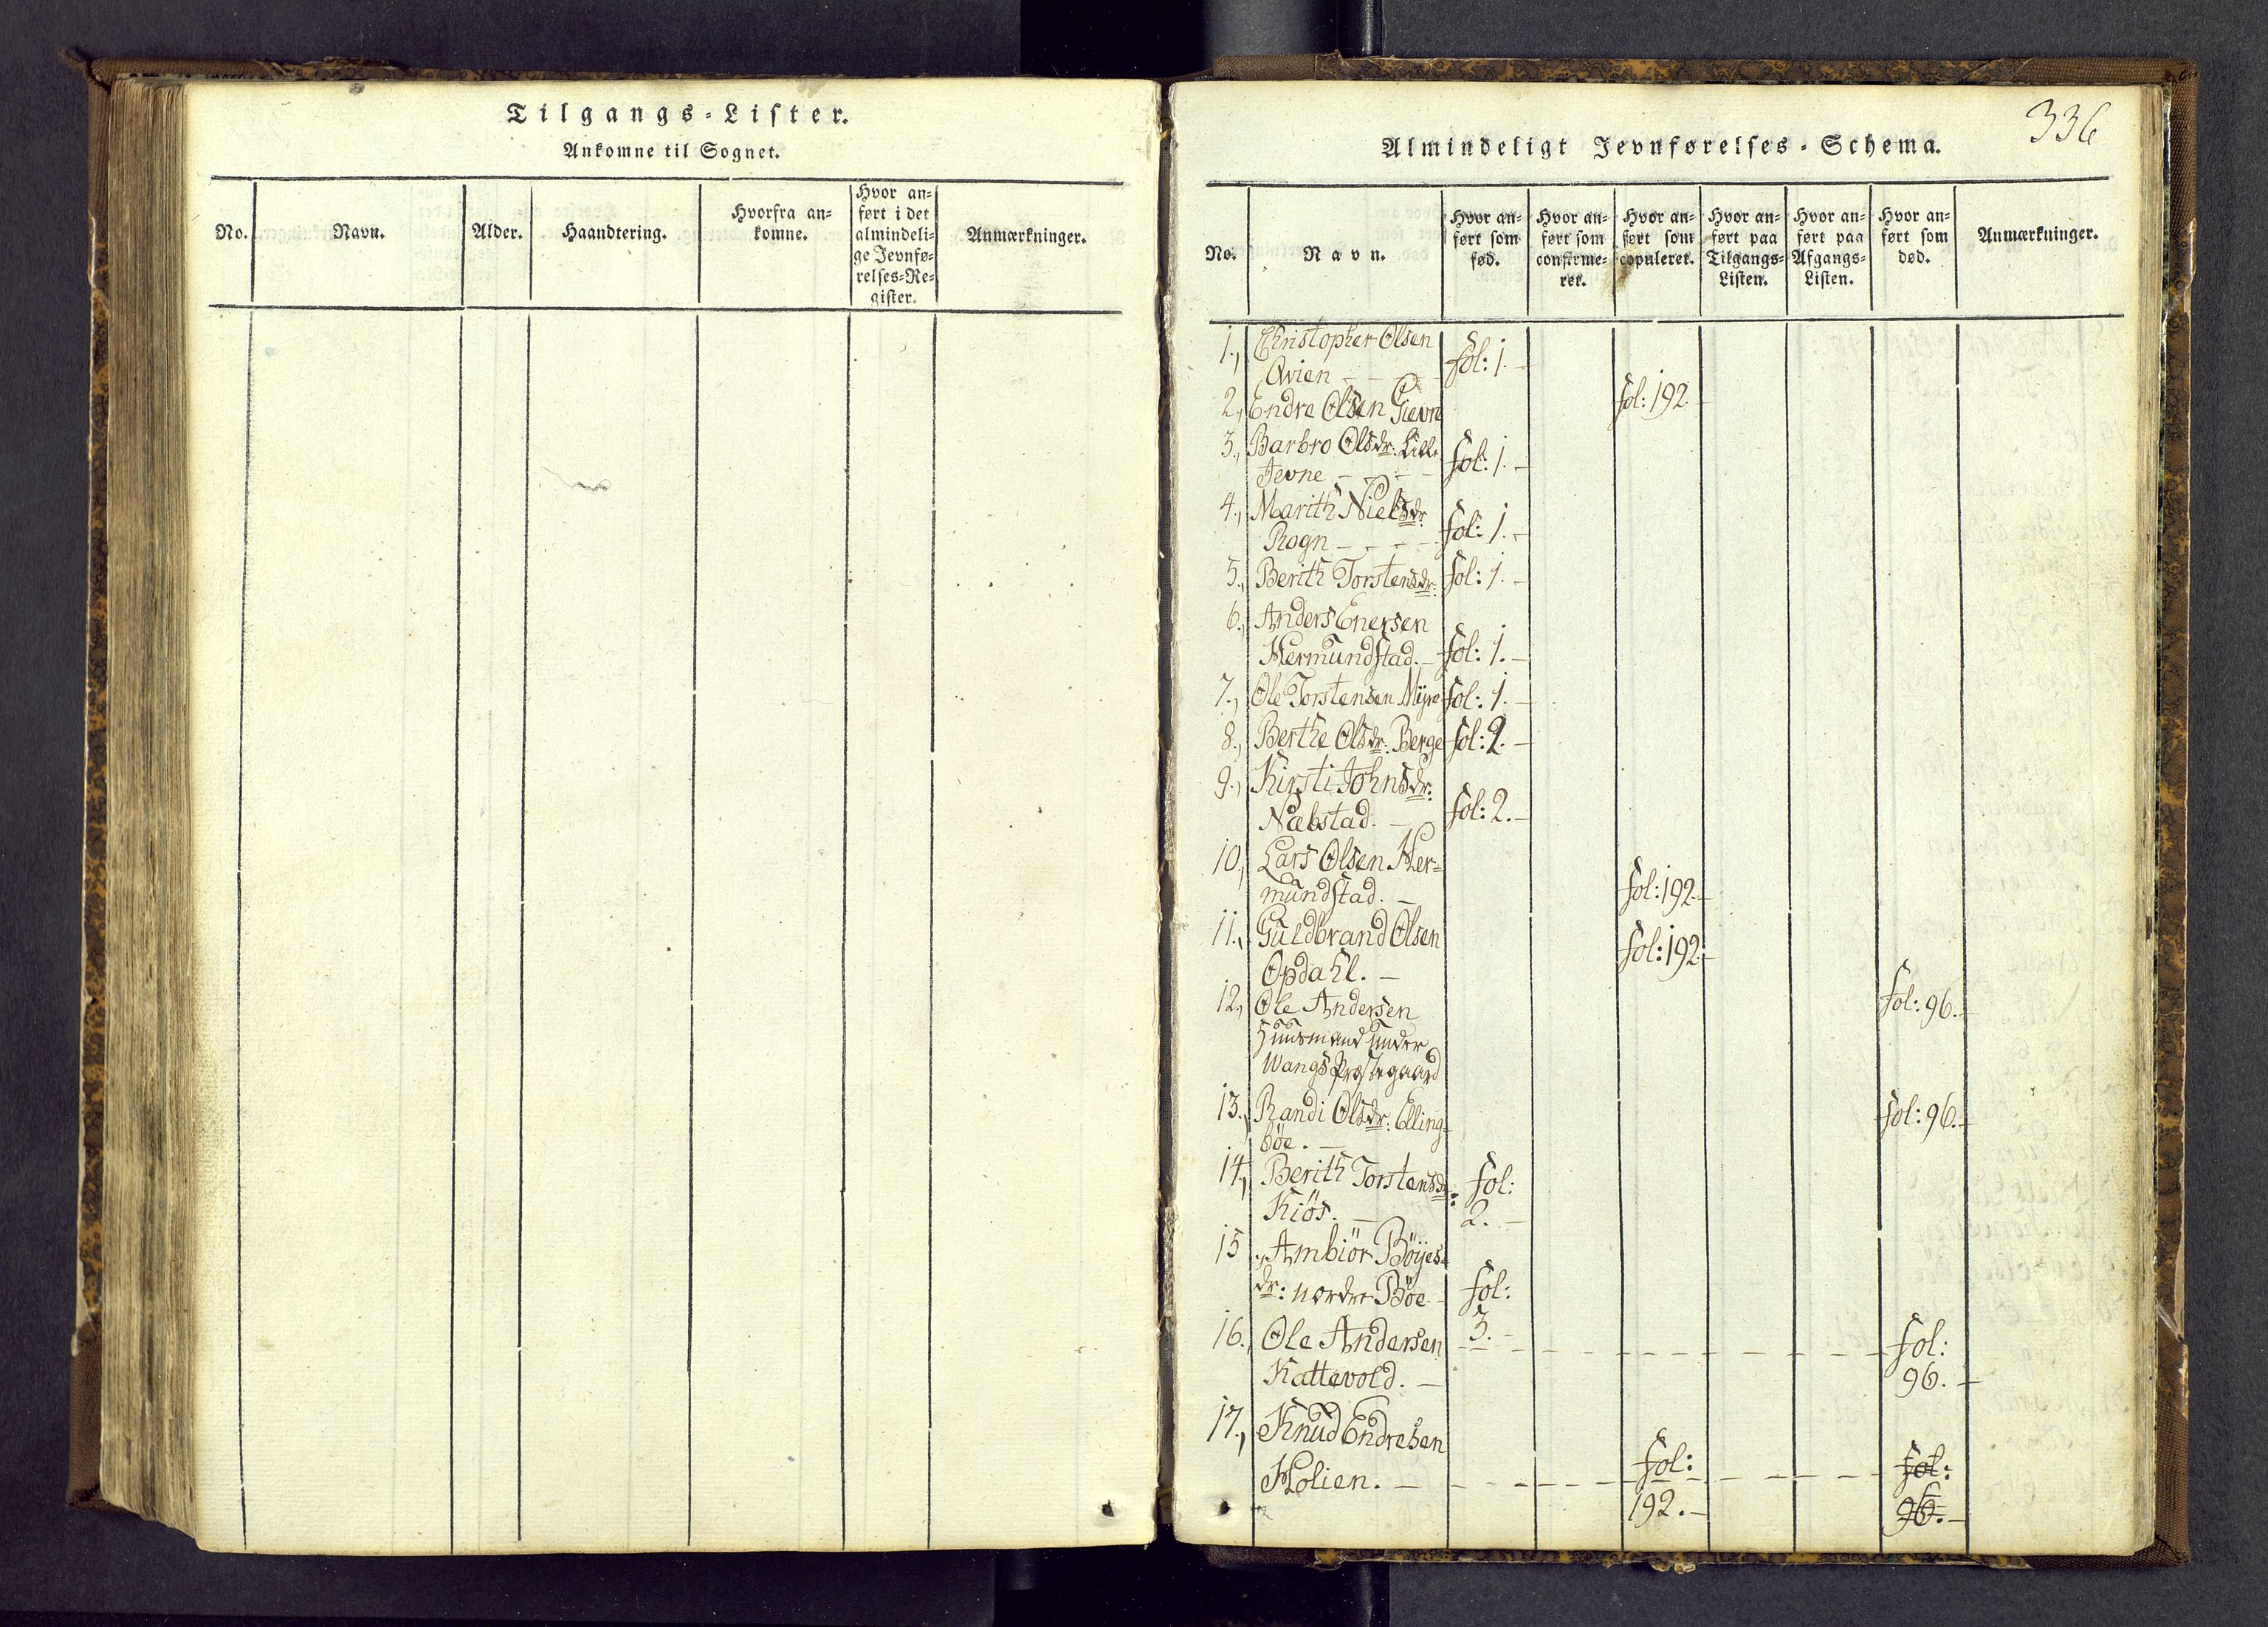 Tilgangs-Lister.
Ankomne til Sognet.
No. Navn. Alder. Haandtering. Hvorfra an-
komne. Hvor an-
ført i det
almindeli-
ge Jevnfø-
relses-Re-
gister. Anmærkninger.
336
Almindeligt Jevnførelses-Schema.
No. Navn. Hvor an-
ført som
fød. Hvor an-
ført som
confirme-
ret. Hvor an-
ført som
copuleret. Hvor an-
ført paa
Tilgangs-
Listen. Hvor an-
ført paa
Afgangs-
Listen. Hvor an-
ført som
død. Anmærkninger.
1., Christopher Olsen
Qvien - - - fol: 1. -
2., Endre Olsen Gievne fol: 192. -
3., Barbro Olsdr: Lill-
Jevne - - - fol: 1. -
4., Marith Nielsdr:
Rogn - - - fol: 1. -
5., Berith Torstensdr: fol: 1. -
6., Anders Enersen
Hermundstad. - fol: 1. -
7., Ole Torstensen Myre fol: 1. -
8., Berthe Olsdr: Berge fol: 2. -
9., Kirsti Johnsdr:
Næbstad. - fol: 2. -
10., Lars Olsen Her=
mundstad. - fol: 192. -
11., Guldbrand Olsen
Opdahl. - fol: 192. -
12., Ole Andersen fol: 96. -
Huusmand under
Wangs Præstegaard
13., Randi Olsdr: Elling= fol: 96. -
bøe. -
14., Berith Torstensdr: fol:
Kiös. - 2. -
15., Ambiör Böyes=
dr: nordre Böe - fol:
3. -
16., Ole Andersen - - - - - - - fol:
Kattevold. - 96. -
17., Knud Endresen
Holien. - - - - fol: - - - - fol:
192. - 96. -